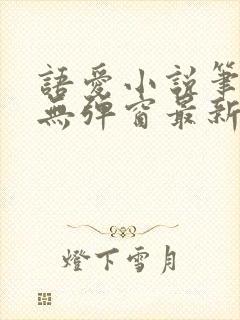 語愛小說筆
無彈窗最新
燈下雪月